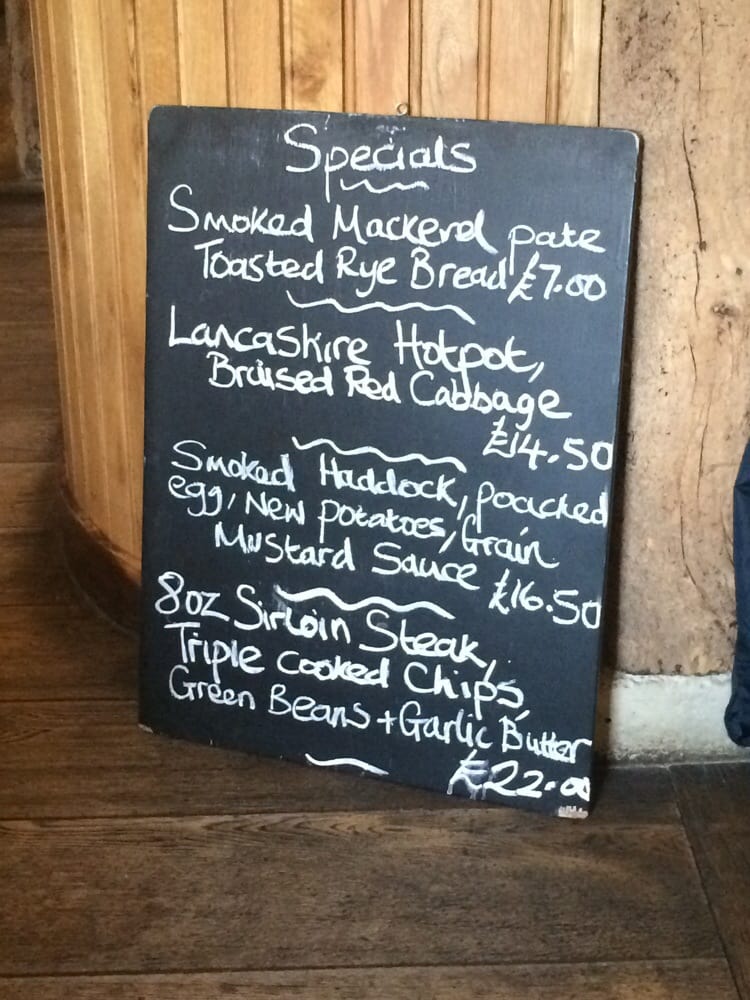 Specials
Smoked Mackerel pate
Toasted Rye Bread £7.00
Lancashire Hotpot,
Braised Red Cabbage
£14.50
Smoked Haddock, poached
egg, New potatoes, Grain
Mustard Sauce £16.50
8oz Sirloin Steak,
Triple cooked Chips,
Green Beans + Garlic Butter
£22.00